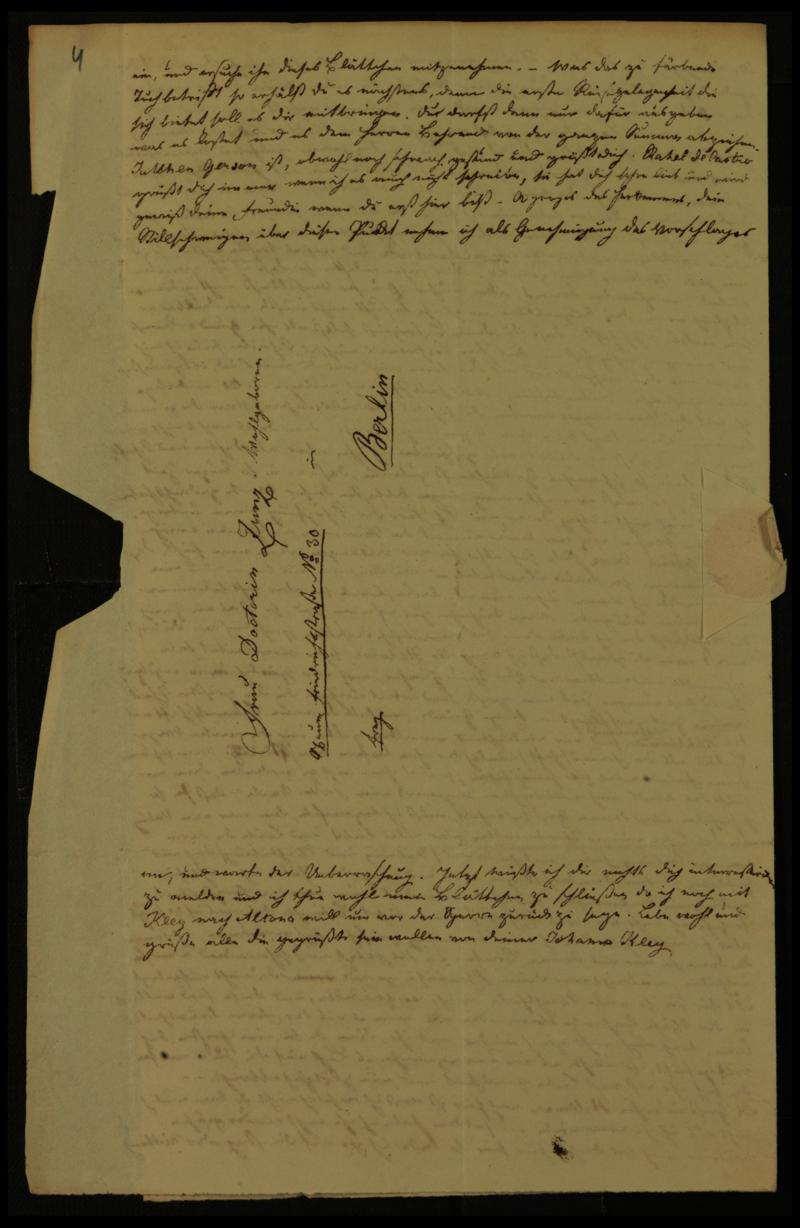 4
ein, und ersuche ihn dieses Blättchen mitzunehmen. – Was das zu färbende
Tuch betrifft so erhälst du es nächstens, denn die erste Reisegelegenheit die
sich bietet soll es dir mitbringen. Du darfst dann nur dafür ausgeben
was es kostet und es dem Herren Behrend von der ganzen Summe abziehen.
Jettchen Gerson ist, obwohl noch schwach, gesund und grüßt dich. Rahel de Castro
grüßt dich immer wenn ich es auch nicht schreibe, sie hat dich sehr lieb und wird
gewiß deine Freundin wenn du erst hier bist. – Apropos des, dein
Stillschweigen über diesen Punkt nehme ich als Genehmigung des Vorschlages
Frau Doctorin Zunz. Wohlgeboren.
Neue Friedrichstraße No 30
in
Berlin
frey
an, und warte der Ueberraschung. Jetzt wüßte ich dir nichts dich interressirendes
zu melden und ich thue wohl mein Blättchen zu schließen da ich noch mit
Kley nach Altona will um vor der Sperre zurück zu sein. Lebe wohl und
grüße alle die gegrüßt sein wollen von deiner Johanna Kley